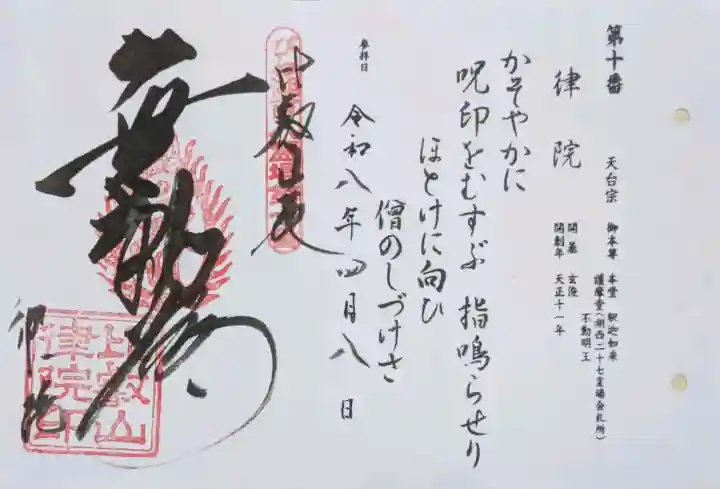 第十番
律院
天台宗
御本尊 本堂 釈迦如来
護摩堂(湖西二十七霊場会札所)
不動明王
開基 玄俊
開創年 天正十一年
かそやかに
呪印をむすぶ 指鳴らせり
ほとけに向ひ
僧のしづけさ
参拝日
令和八年四月八日
比叡山
律院
比叡山
律院印